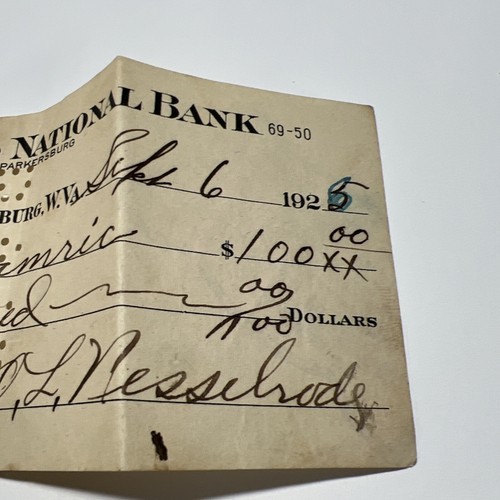 NATIONAL BANK 69-50
PARKERSBURG
BURG, W.VA. Sept 6 1925
amrick $100 00/XX
ed 00/100 DOLLARS
O, L, Nesselrode